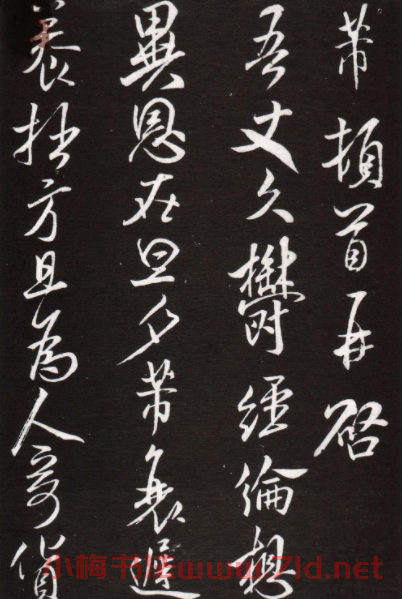 芾頓首再啓
吾丈久鬱經綸想
異恩在旦夕芾衰遲
養拙方且為人奇貨
小梅书法www.7ld.net